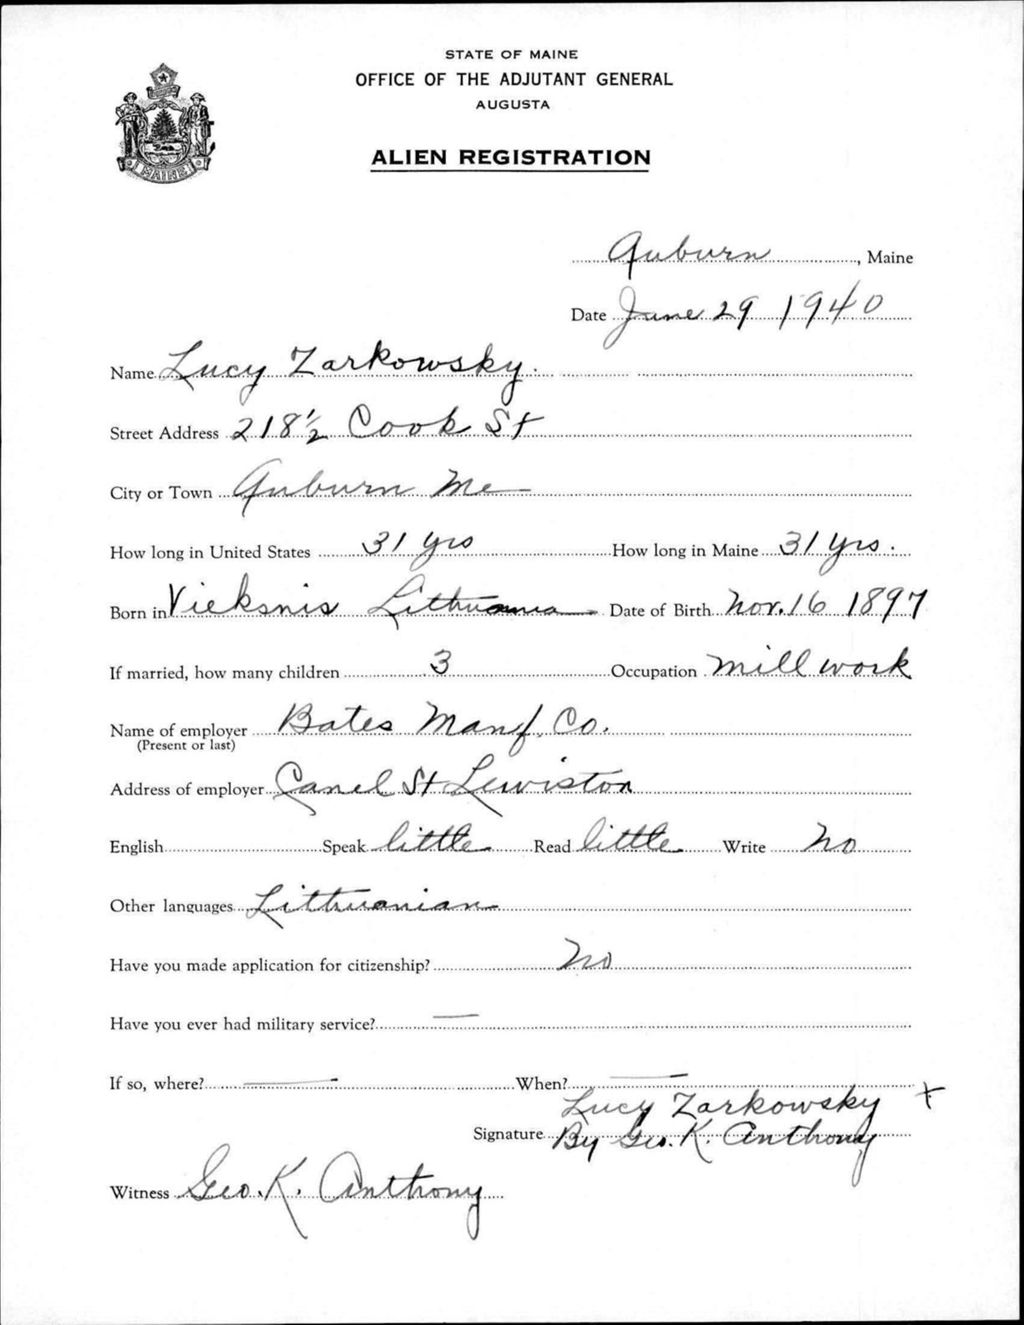 STATE OF MAINE
OFFICE OF THE ADJUTANT GENERAL
AUGUSTA
ALIEN REGISTRATION
MAINE
Auburn, Maine
Date June 29 1940
Name Lucy Zarkowsky.
Street Address 218 1/2 Cook St
City or Town Auburn Me
How long in United States 31 yrs How long in Maine 31 yrs.
Born in Vieksnis Lithuania Date of Birth Nov. 16 1897
If married, how many children 3 Occupation Mill work
Name of employer Bates Manf. Co.
(Present or last)
Address of employer Canel St Lewiston
English Speak little Read little Write No
Other languages Lithuanian
Have you made application for citizenship? No
Have you ever had military service? —
If so, where? — When? —
Lucy Zarkowsky x
Signature By Geo. K. Anthony
Witness Geo. K. Anthony